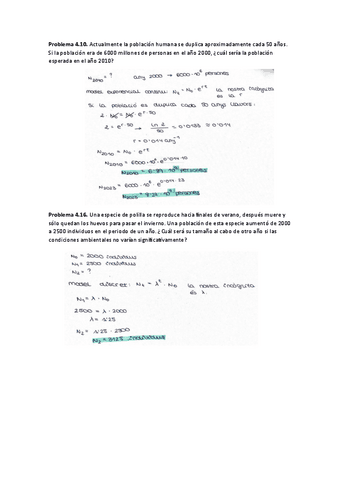 Problema 4.10. Actualmente la población humana se duplica aproximadamente cada 50 años.
Si la población era de 6000 millones de personas en el año 2000, ¿cuál sería la población
esperada en el año 2010?
N2010 = ? any 2000 → 6000·10⁶ persones
model exponencial continu Nt = N0·e^r·t la nostra incògnita
és la r
Si la població es duplica cada 50 anys llavors:
2·N0 = N0·e^r·50
2 = e^r·50 → ln 2 / 50 = 0.0138 ≈ 0.014
r = 0.014 any⁻¹
N2010 = N0·e^r·t
N2010 = 6000·10⁶·e^0.014·10
N2010 = 6.9·10⁹ persones
N2023 = 6000·10⁶·e^0.014·23
N2023 = 8.21·10⁹ persones
Problema 4.16. Una especie de polilla se reproduce hacia finales de verano, después muere y
sólo quedan los huevos para pasar el invierno. Una población de esta especie aumentó de 2000
a 2500 individuos en el periodo de un año. ¿Cuál será su tamaño al cabo de otro año si las
condiciones ambientales no varían significativamente?
N0 = 2000 individuus
N1 = 2500 individuus
N2 = ?
model discret: Nt = λ^t·N0 la nostra incògnita
és λ.
N1 = λ·N0
2500 = λ·2000
λ = 1'25
N2 = 1'25·2500
N2 = 3125 individuus